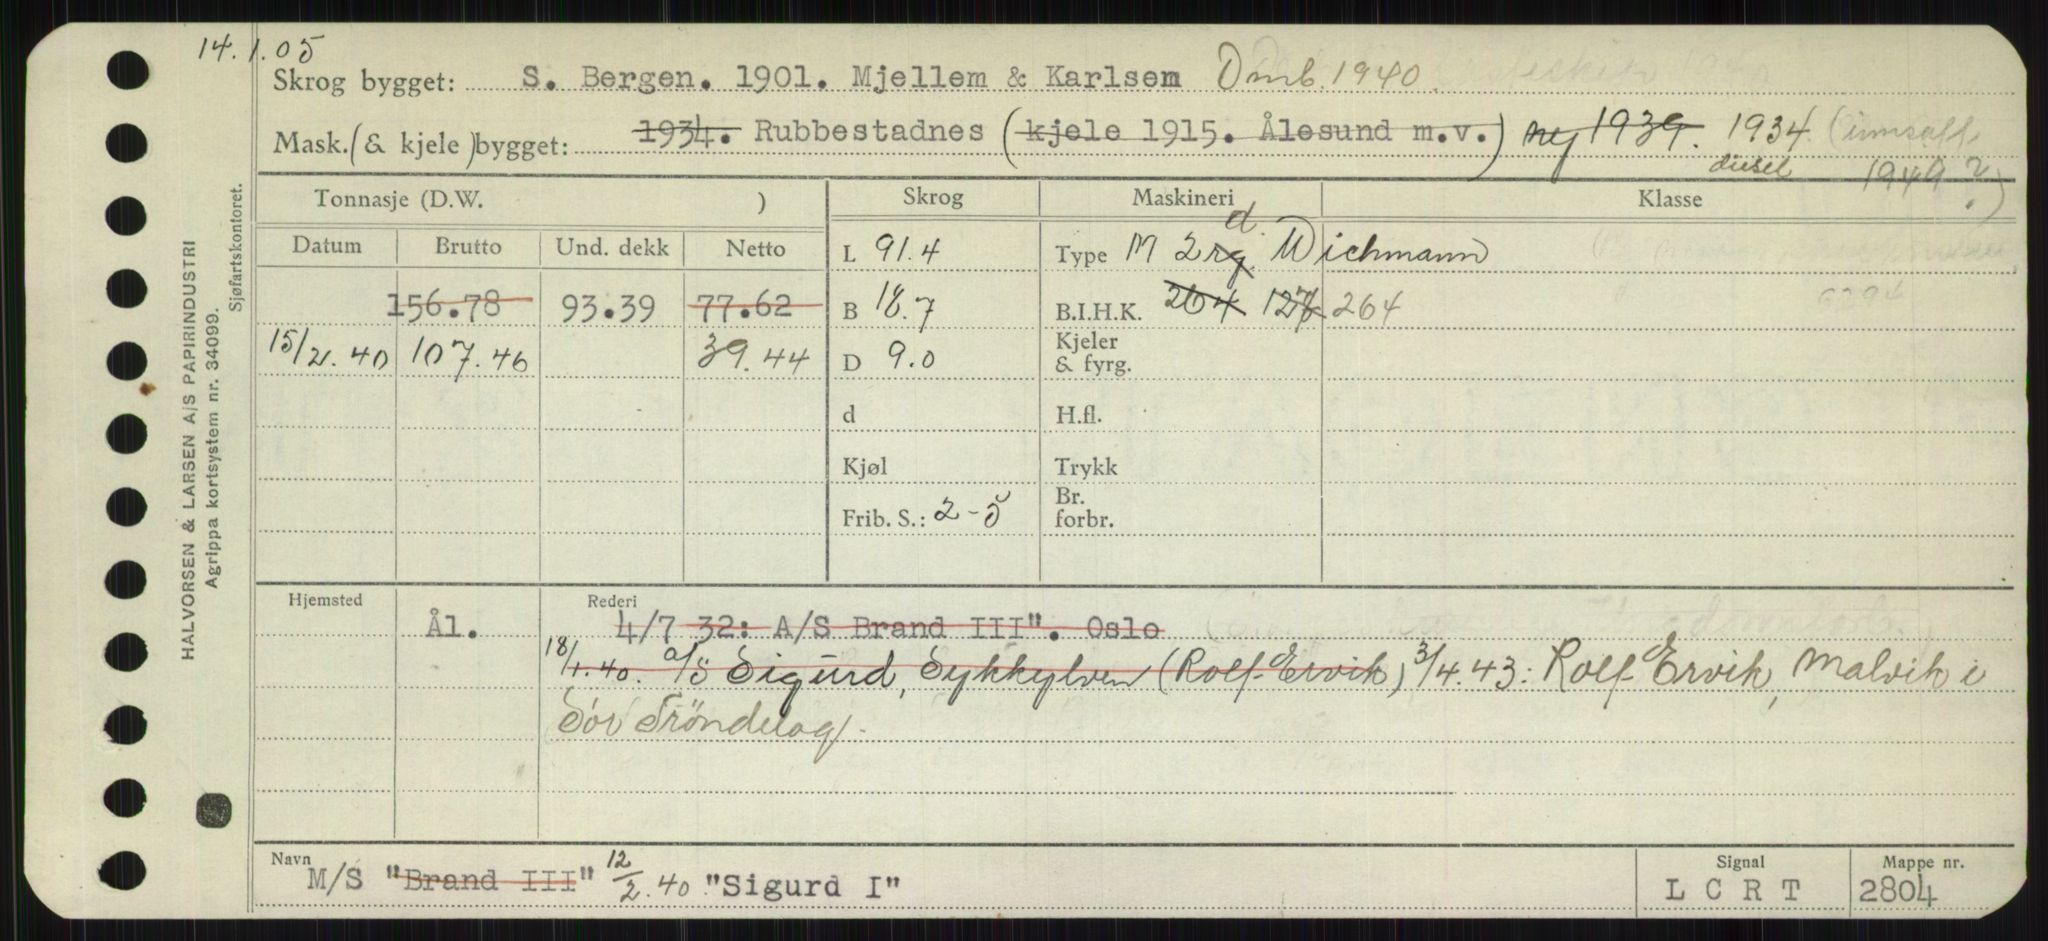 14.1.05
Skrog bygget: S. Bergen. 1901. Mjellem & Karlsem Omb. 1940.
Mask. (& kjele) bygget: 1934. Rubbestadnes (kjele 1915. Ålesund m.v.) ny 1939. 1934. (innsatt
diesel 1949?)
Tonnasje (D.W. ) Skrog Maskineri Klasse
Datum Brutto Und. dekk Netto L 91.4 Type M 2rg. d. Wichmann
156.78 93.39 77.62 B 18.7 B.I.H.K. 264 127 264
15/2.40 107.46 39.44 D 9.0 Kjeler & fyrg.
d H.fl.
Kjøl Trykk
Frib. S.: 2-5 Br. forbr.
Hjemsted Rederi
Ål. 4/7 32: A/S Brand III". Oslo
18/1.40. a/s Sigurd, Sykkylven (Rolf Ervik) 3/4.43: Rolf Ervik, Malvik i
Sør Trøndelag.
Navn Signal Mappe nr.
M/S "Brand III" 12/2.40 "Sigurd I" L C R T 2804
HALVORSEN & LARSEN A/S PAPIRINDUSTRI
Agrippa kortsystem nr. 34099.
Sjøfartskontoret.